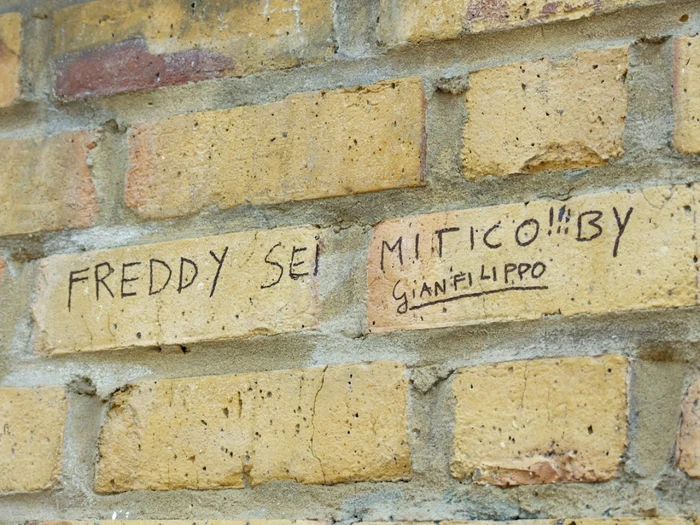 FREDDY SEI MITICO!!! BY
GIANFILIPPO